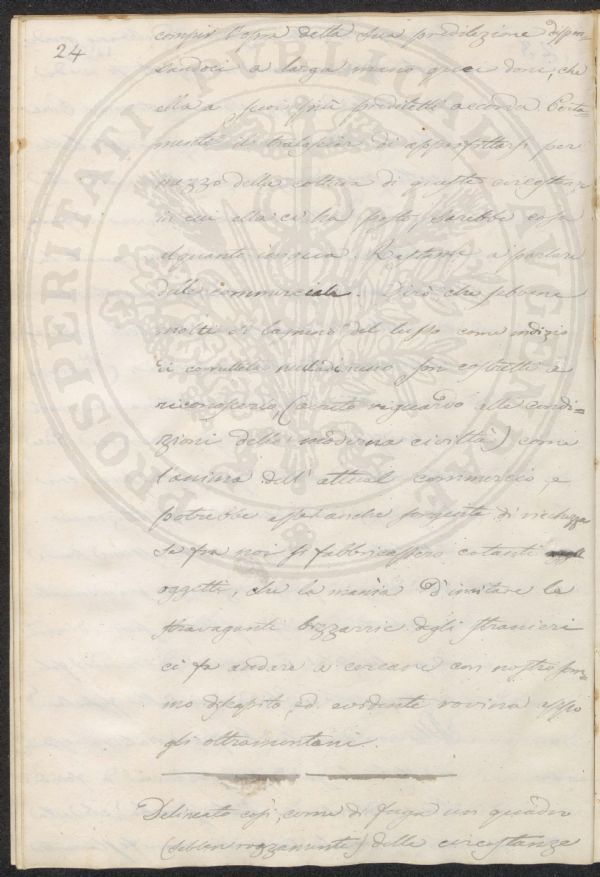 24
compir l'opra della sua predilezione dispen-
sandoci a larga mano quei doni, che
ella a' suoi più prediletti accorda. Certa-
mente il tralasciar di approfittarsi per
mezzo della coltura di queste circostanze
in cui ella ci ha posto, sarebbe cosa
alquanto iniqua. Restame a parlare
del commerciale. Dirò che sebbene
molti il lusso come indizio
di corruttela nulladimeno son costretto a
riconoscerlo, (avuto riguardo alle condi=
zioni della moderna civiltà) come
l'anima dell'attual commercio, e
potrebbe esser anche sorgente di ricchezza
se fra noi si fabbricassero cotanti
oggetti, che la manìa d'imitare le
stravaganti bizzarrie degli stranieri
ci fa andare a cercare con nostro som-
mo discapito, ed evidente rovina appo
gli oltramontani.
Delineato così, come di fuga un quadro
(sebben rozzamente) delle circostanze
PROSPERITATI PUBLICAE AUGENDAE